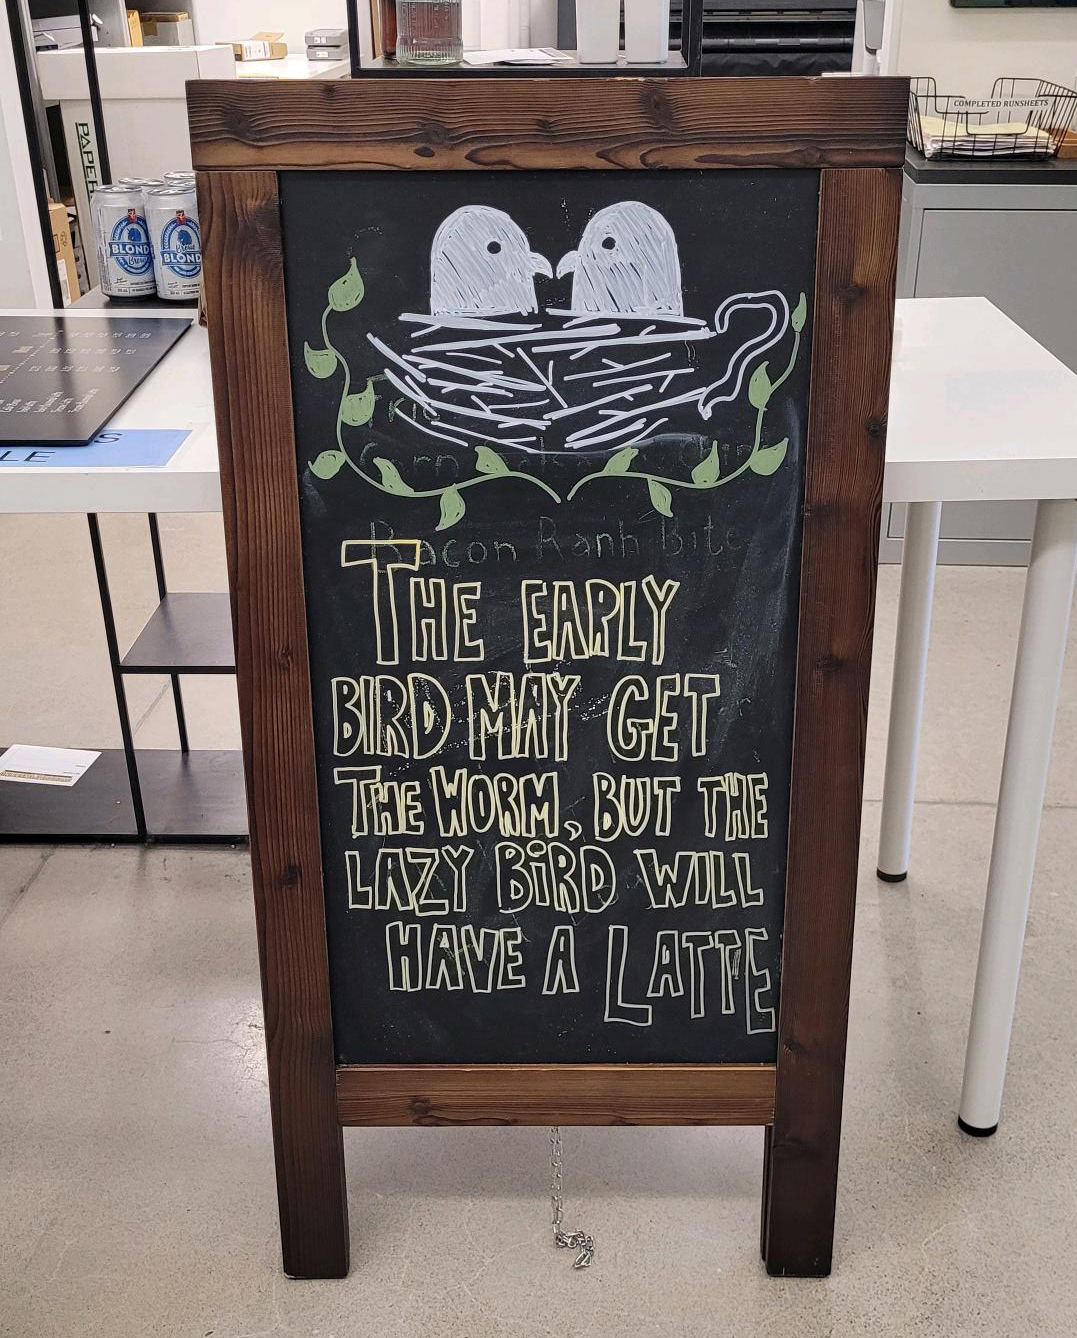 COMPLETED RUNSHEETS
PAPER
BLONDE
Brew
BLOND
Bacon Ranh Bite
THE EARLY
BIRD MAY GET
THE WORM, BUT THE
LAZY BIRD WILL
HAVE A LATTE